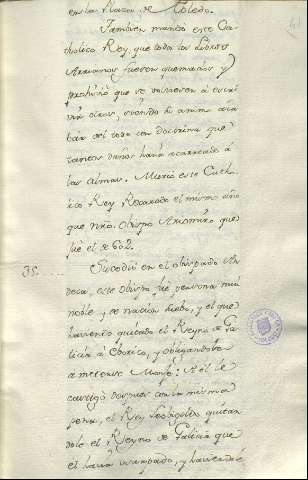 en la Plaza de Toledo.
Tambien mando este Ca-
tholico Rey, que todos los Libros
Arrianos fuesen quemados, y
prohivió que se volviesen á escri-
vir otros, siendo su animo aca-
bar del todo con doctrina que
tantos daños havia acarreado á
las almas. Murió este Catho-
lico Rey Recaredo el mismo año
que nro. Obispo Argimiro que
fué el de 602.
35....
Sucedió en el obispado An-
deca, este Obispo fué persona mui
noble, y de nacion Suebo, y el que
haviendo quitado el Reyno de Ga-
licia á Eborico, y obligandole
a meterse Monge: A él le
castigó despues con la misma
pena, el Rey Leobigildo, quitan-
dole el Reyno de Galicia que
el havia usurpado, y haciendo